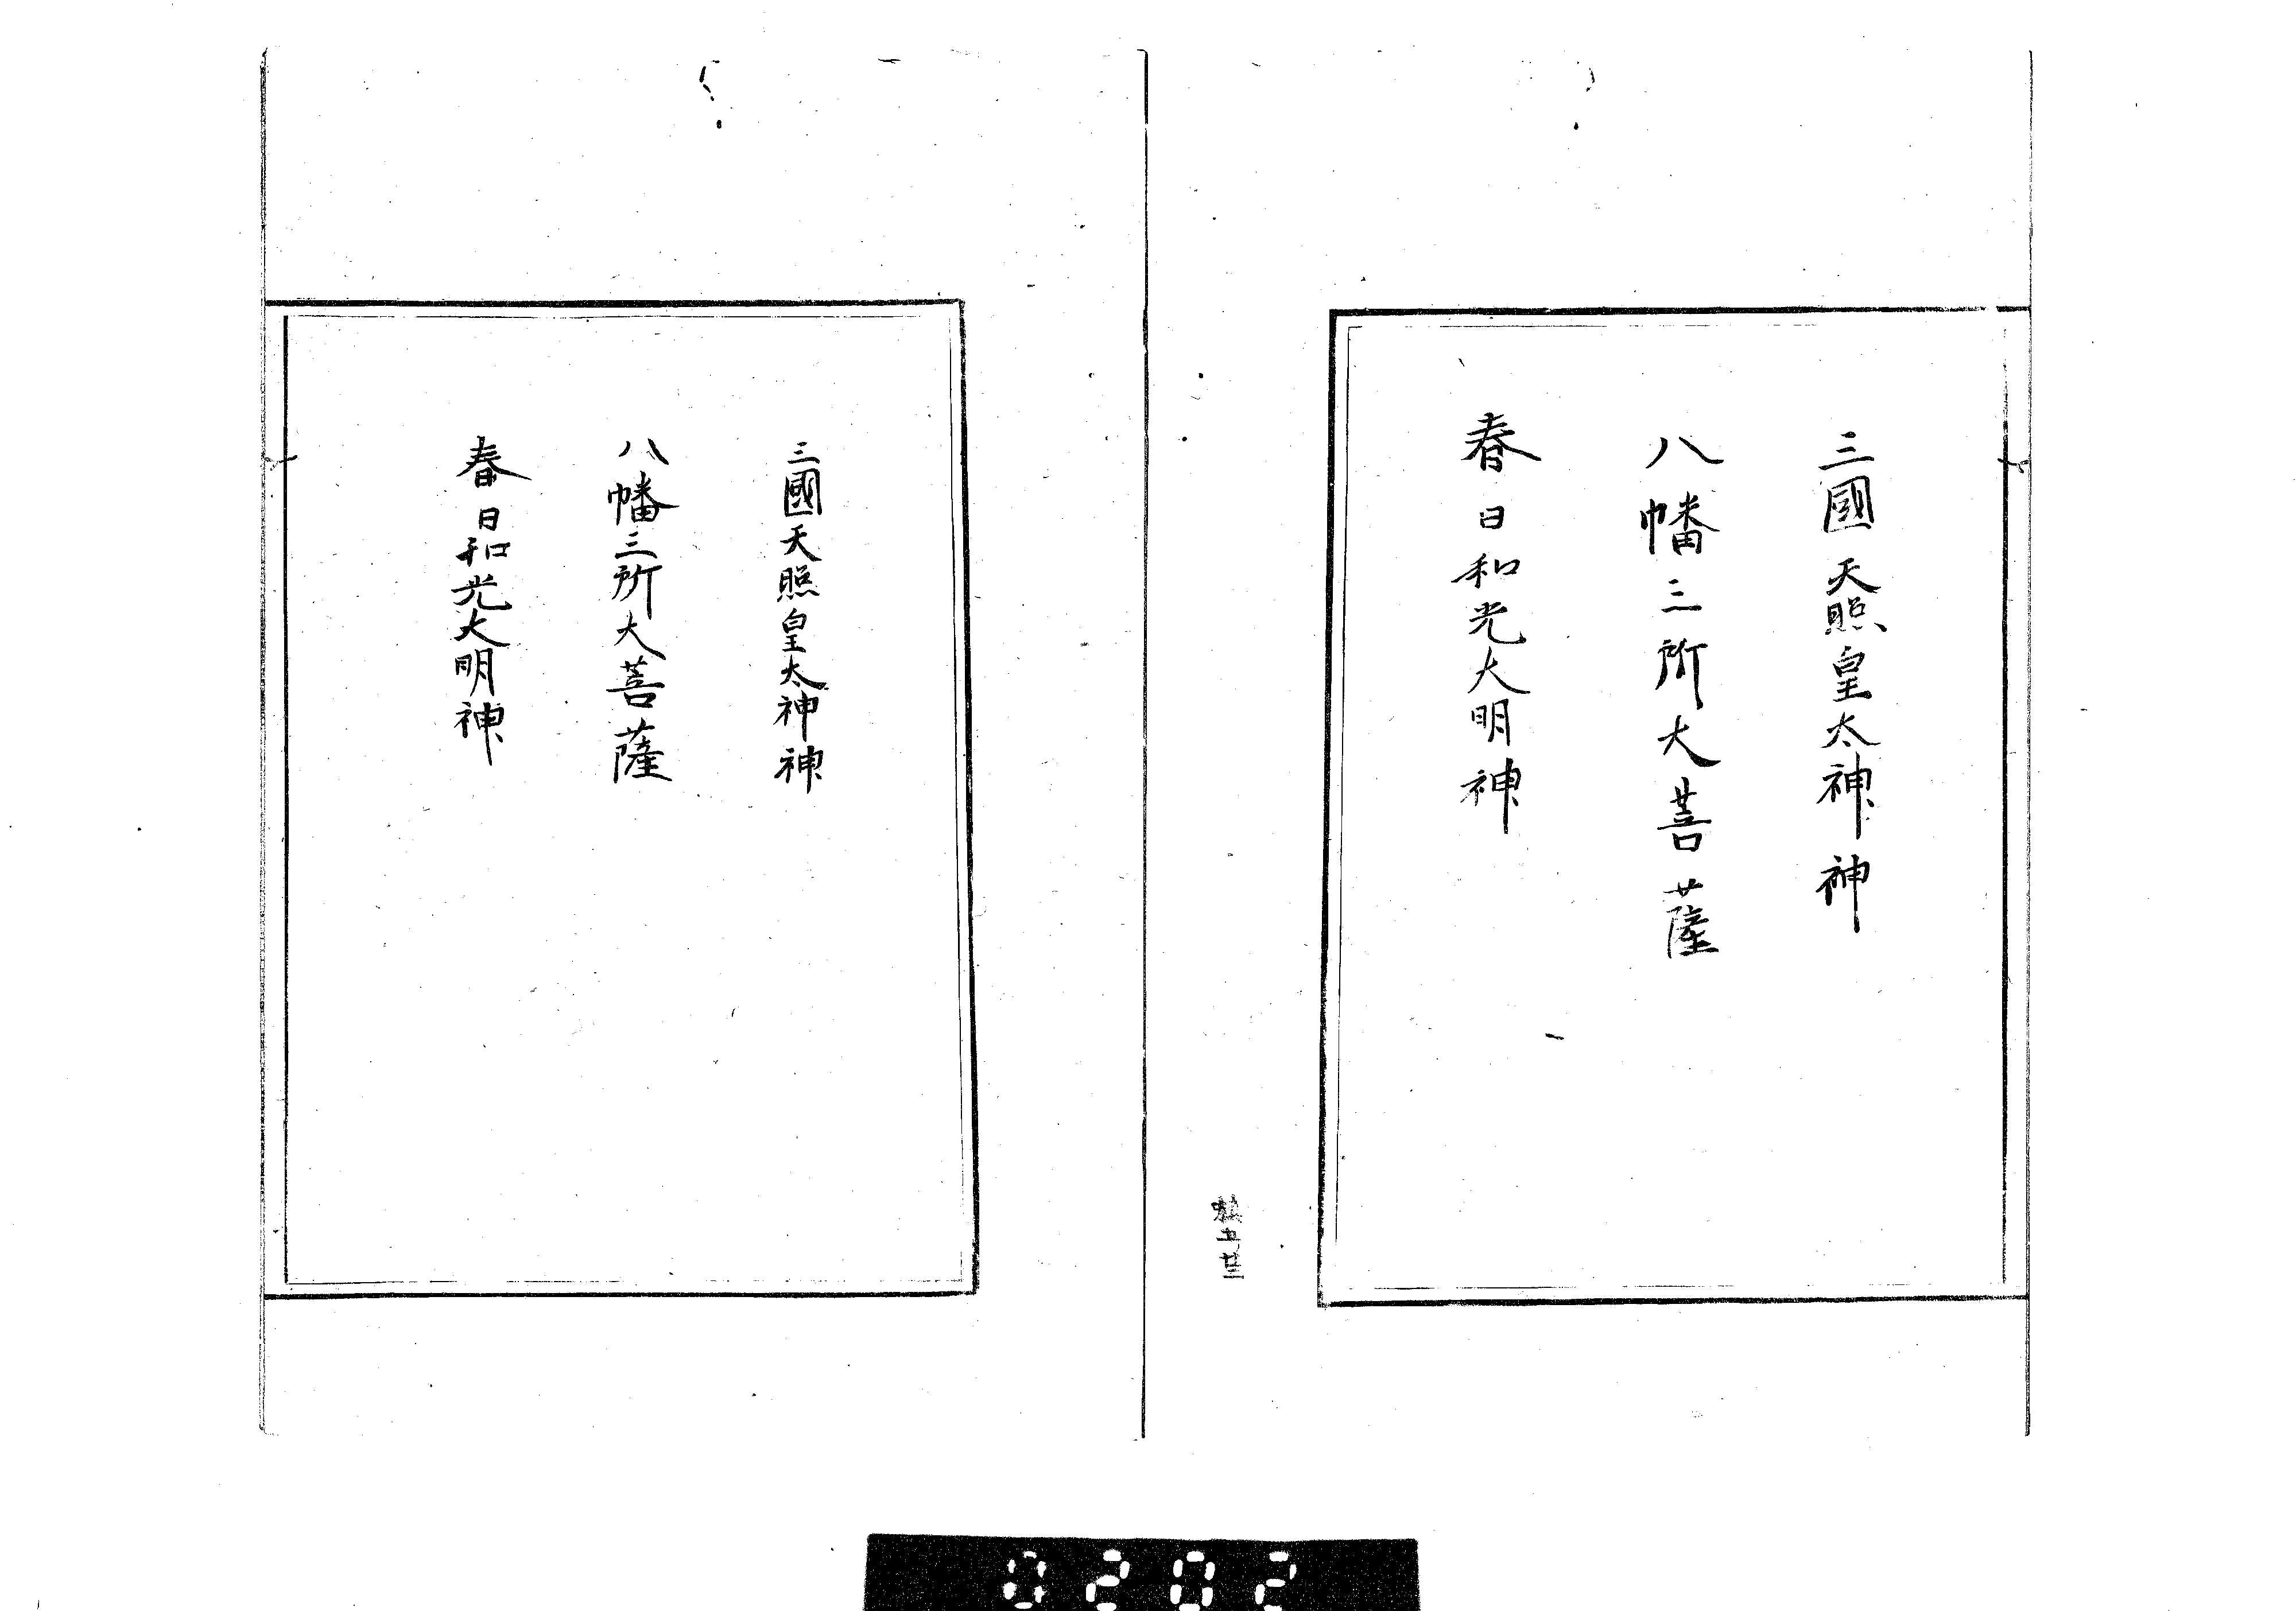 三國天照皇太神神
八幡三所大菩薩
春日和光大明神
三國天照皇太神神
八幡三所大菩薩
春日和光大明神
0202